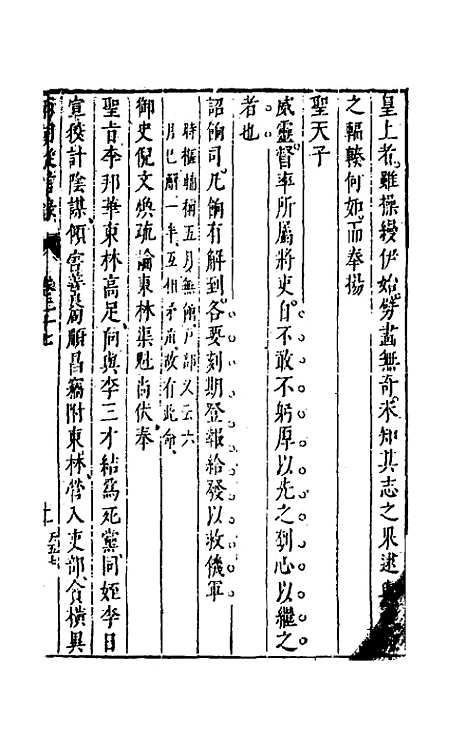 皇上者雖操縵伊始努畫無奇未知其志之果逮與
之輻輳何如而奉揚
聖天子
威靈督率所屬將吏自不敢不躬厚以先之刲心以繼之
者也
詔餉司凡餉有解到各要刻期登報給發以救饑軍
時樞輔稱五月無餉戶部又云六
月已解一半互相矛盾故有此命
御史倪文煥疏論東林渠魁尚伏奉
聖旨李邦華東林高足向與李三才結為死黨同姪李日
宣狡計陰謀傾害善良周順昌竊附東林營入吏部貪橫異